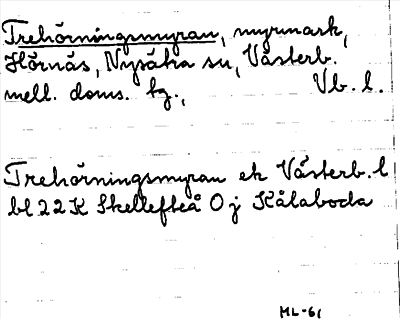 Trehörningsmyran, myrmark,
Hörnås, Nysätra sn, Västerb.
mell. doms. tg., Vb. l.
Trehörningsmyran ek Västerb. l
bl 22K Skellefteå 0 j Kålaboda
ML-61